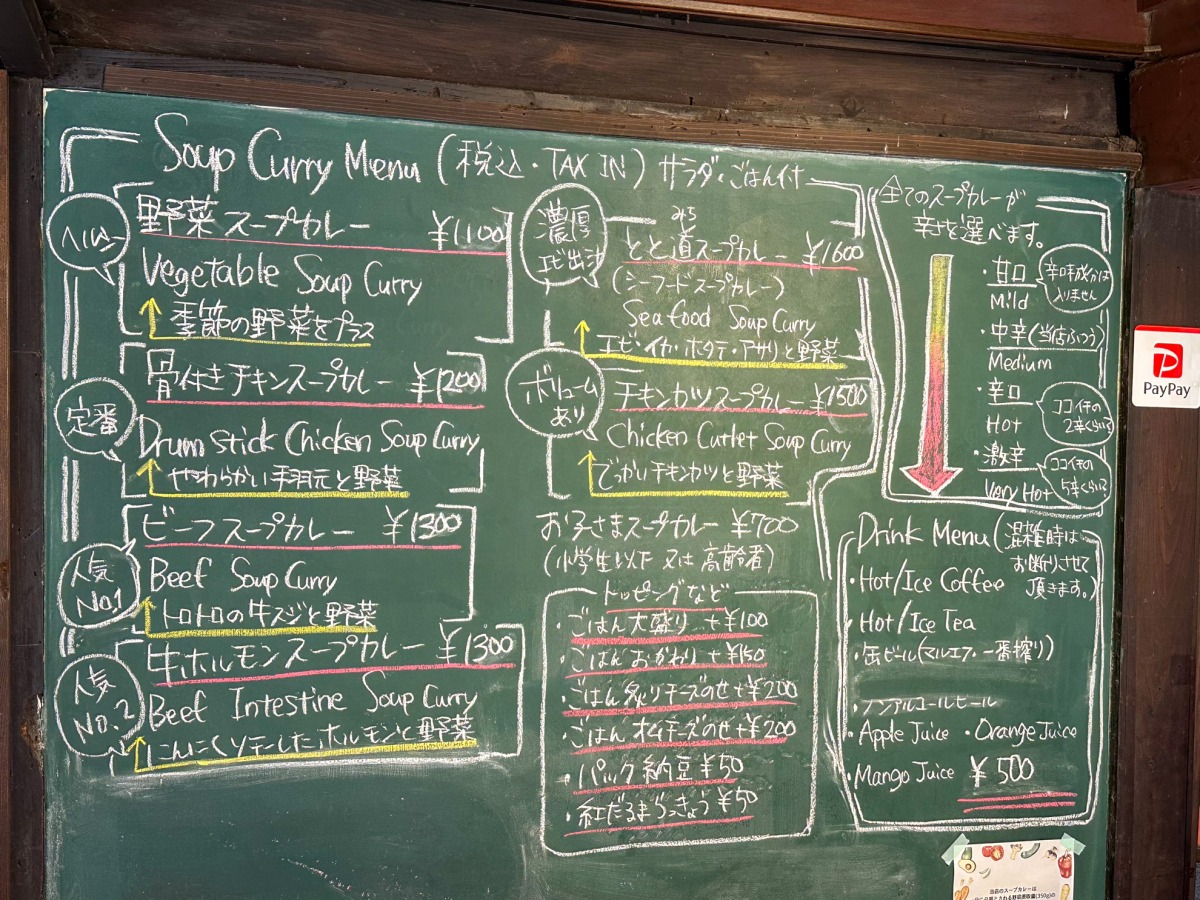 Soup Curry Menu (税込・TAX IN) サラダ・ごはん付
ヘルシー
野菜スープカレー ¥1100
Vegetable Soup Curry
季節の野菜をプラス
定番
骨付きチキンスープカレー ¥1200
Drum stick Chicken Soup Curry
やわらかい手羽元と野菜
人気
No.1
ビーフスープカレー ¥1300
Beef Soup Curry
トロトロの牛スジと野菜
人気
No.2
牛ホルモンスープカレー ¥1300
Beef Intestine Soup Curry
にんにくソテーしたホルモンと野菜
濃厚
エビ出汁
みち
とと道スープカレー ¥1600
(シーフードスープカレー)
Seafood Soup Curry
エビ・イカ・ホタテ・アサリと野菜
ボリューム
あり
チキンカツスープカレー ¥1500
Chicken Cutlet Soup Curry
でっかいチキンカツと野菜
お子さまスープカレー ¥700
(小学生以下又は高齢者)
トッピングなど
・ごはん大盛り +¥100
・ごはんおかわり +¥150
・ごはん炙りチーズのせ +¥200
・ごはんオムチーズのせ +¥200
・パック納豆 ¥50
・紅だるまらっきょう ¥50
全てのスープカレーが
辛さを選べます。
・甘口
Mild
辛口成分は
入りません
・中辛(当店ふつう)
Medium
・辛口
Hot
ココイチの
2辛くらい?
・激辛
Very Hot
ココイチの
5辛くらい?
Drink Menu (混雑時は
お断りさせて
頂きます。)
・Hot/Ice Coffee
・Hot/Ice Tea
・缶ビール(マルエフ・一番搾り)
・ノンアルコールビール
・Apple Juice ・Orange Juice
・Mango Juice ¥500
PayPay
当店のスープカレーは